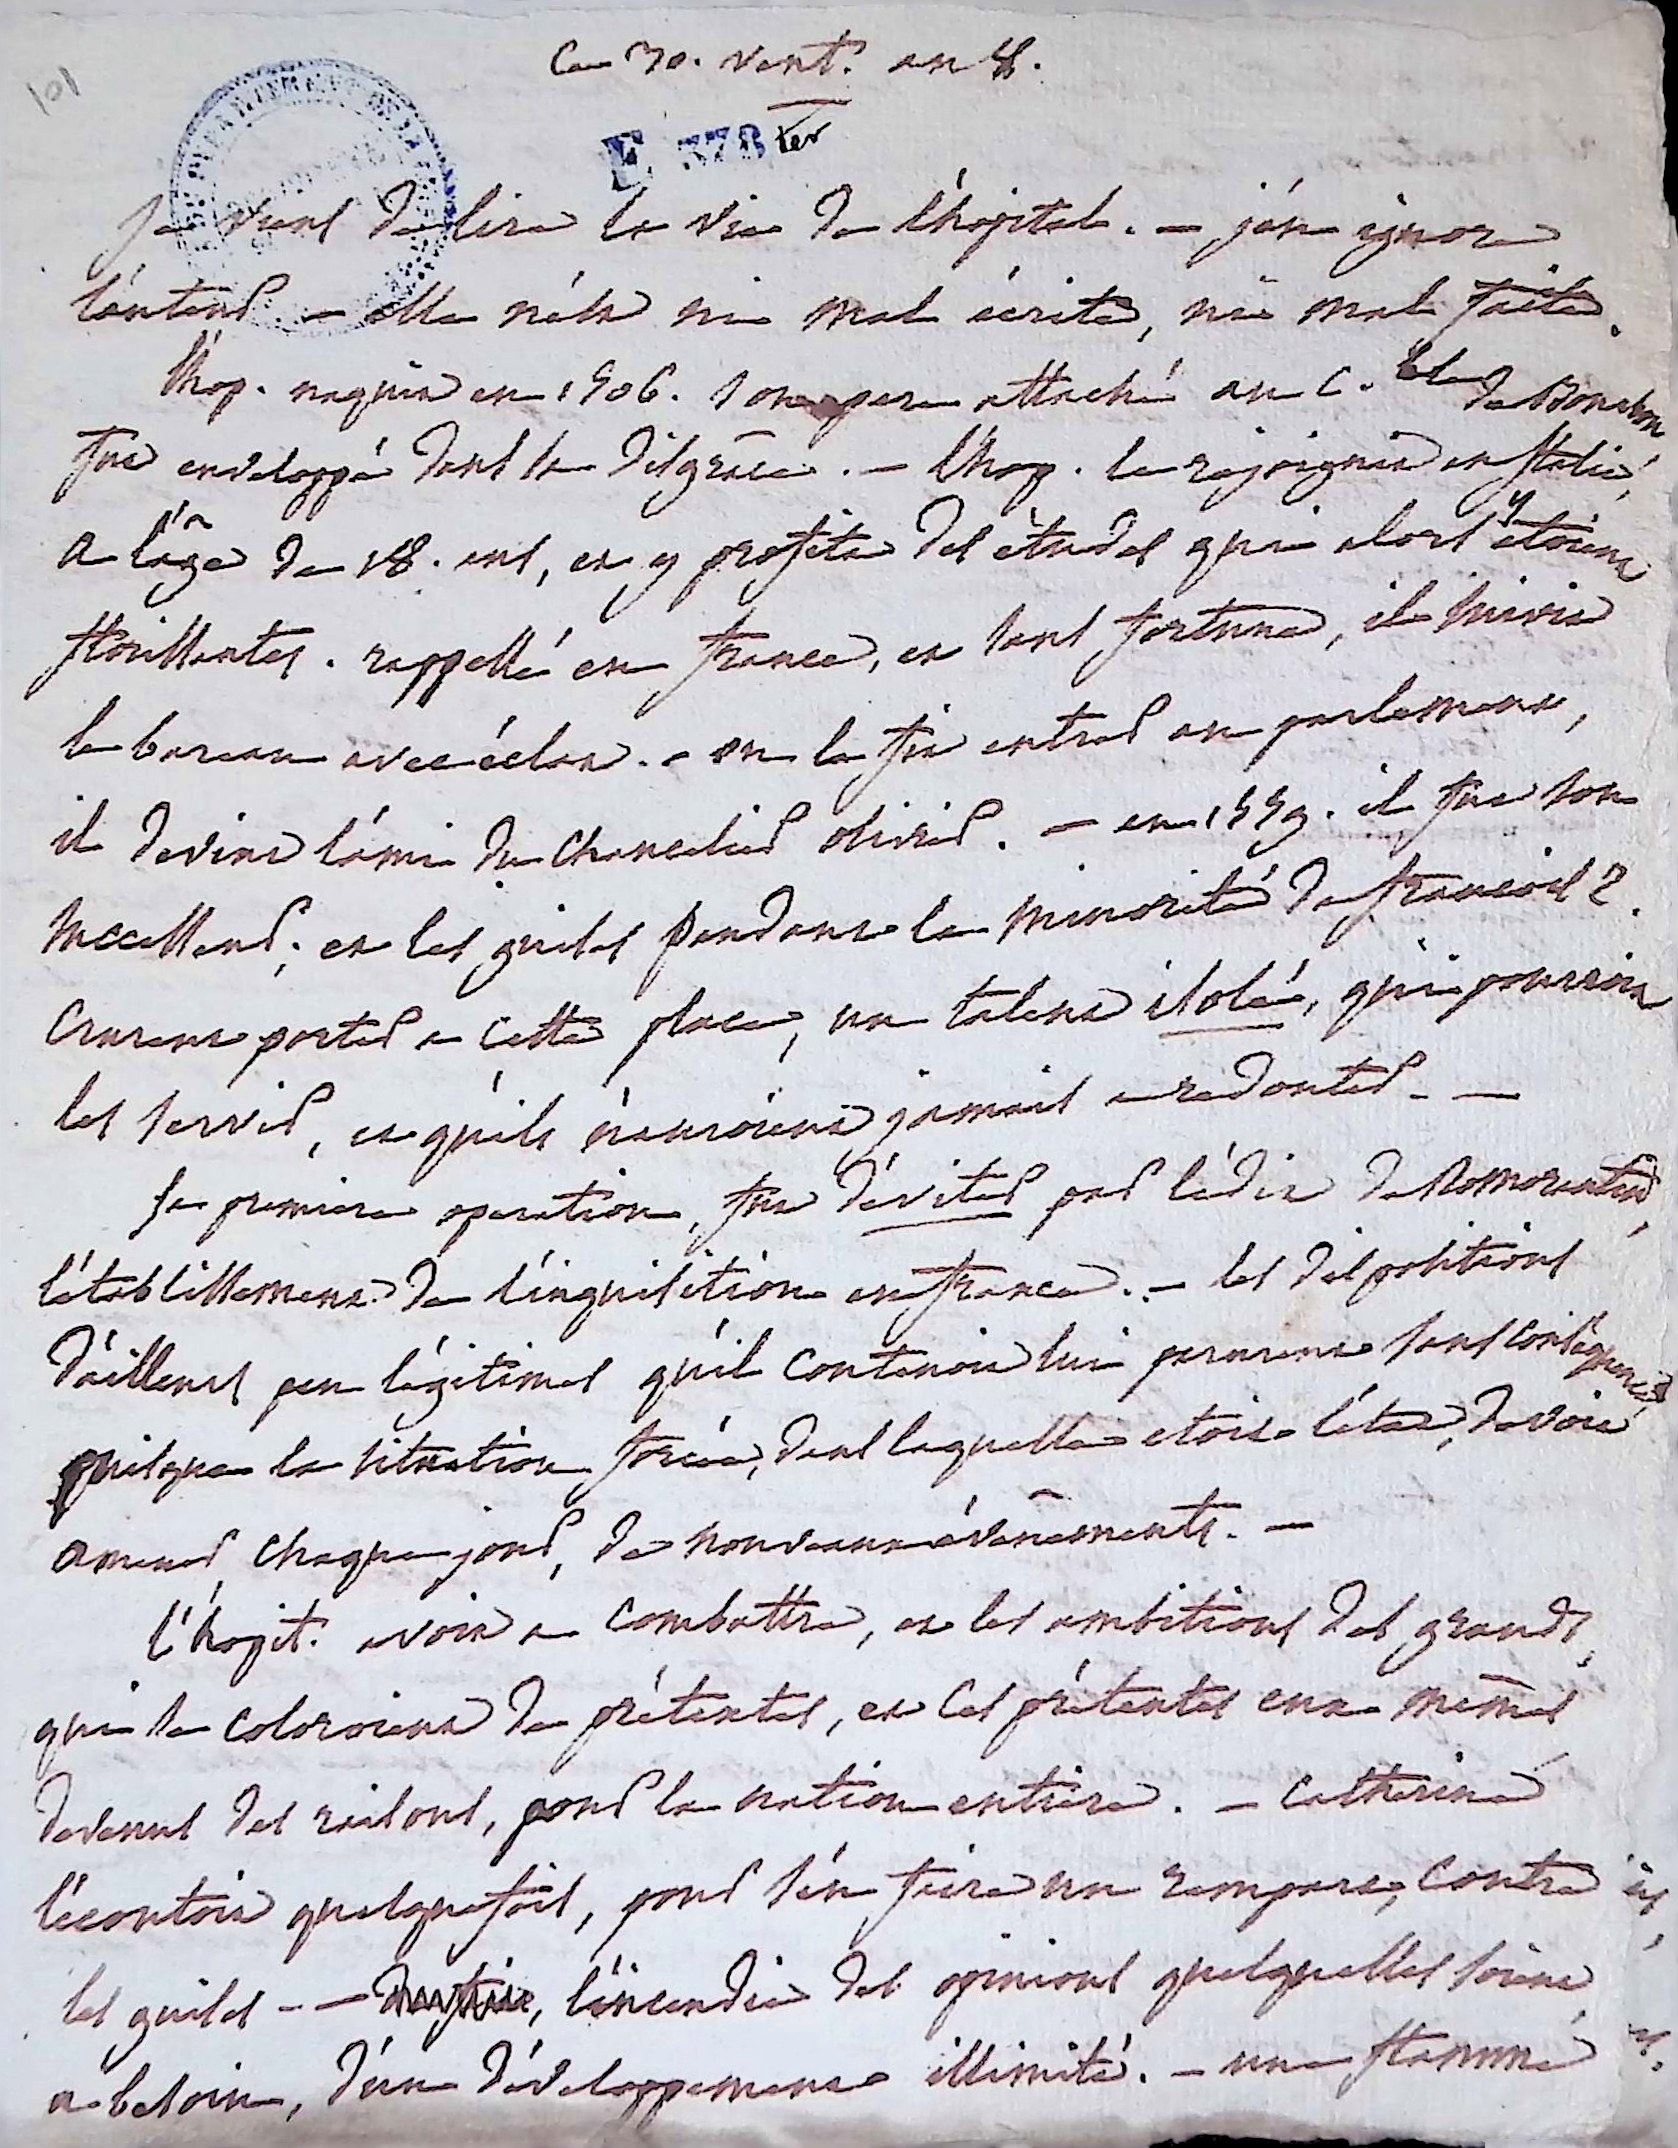 101
Ce 30. vent. an 8.
E 378 ter
je viens de lire la vie de l'hopital. – j'en ignore
l'auteur – elle n'est ni mal écrite, ni mal faite.
l'hop. naquit en 1506. son pere attaché au C. ble de Bourbon
fut enveloppé dans sa disgrace. – l'hop. le rejoignit en Italie,
a l'age de 18. ans, et y profita des études qui alors y étoient
florissantes. rappellé en france, et sans fortune, il suivit
le bareau avec éclat. – on le fit entrer au parlement,
il devint l'ami du chancelier olivier. – en 1559. il fut son
successeur; et les guises pendant la minorité de françois 2.
crurent porter a cette place, un talent isolé, qui pourroit
les servir, et qu'ils n'auroient jamais a redouter. –
sa premiere operation, fut d'éviter par l'édit de Romorantin,
l'établissement de l'inquisition en france. – les dispositions
d'ailleurs peu légitimes qu'il contenoit lui parurent sans conséquence,
puisque la situation forcée, dans laquelle etoit l'état, devoit
amener, chaque jour, de nouveaux évènements. –
l'hopit. avoit a combattre, et les ambitions des grands,
qui se coloroient de prétextes, et ces prétextes eux mêmes
devenus des raisons, pour la nation entiere. – catherine
l'écoutoit quelquefois, pour s'en faire un rempart, contre
les guises – – l'incendie des opinions quelquelles soient
a besoin, d'un développement illimité. – une flamme